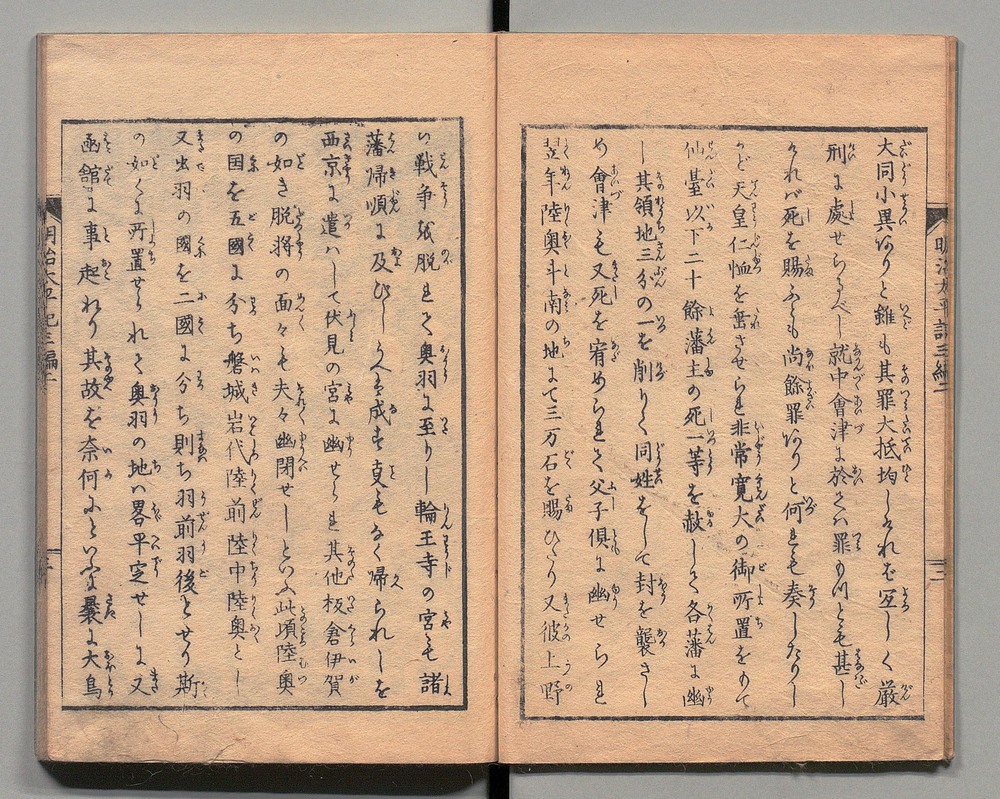 大同小異ありと雖も其罪大抵均しければ宜しく厳
刑に處せらるべし就中會津に於ては罪もつとも甚し
ければ死を賜ふとも尚餘罪ありと何れも奏したりし
かど天皇仁恤を垂させられ非常寛大の御所置をもて
仙臺以下二十餘藩主の死一等を赦して各藩に幽
し其領地三分の一を削りて同姓をして封を襲さし
め會津も又死を宥められて父子倶に幽せられ
翌年陸奥斗南の地にて三万石を賜ひたり又彼上野
の戦争を脱れて奥羽に至りし輪王寺の宮も諸
藩帰順に及びしうへは成す事もなく帰られしを
西京に遣はして伏見の宮に幽せられ其他板倉伊賀
の如き脱将の面々も夫々幽閉せしといふ此頃陸奥
の国を五國に分ち磐城岩代陸前陸中陸奥とし
又出羽の國を二國に分ち則ち羽前羽後とせり斯
の如くに所置せられて奥羽の地は畧平定せしに又
函館に事起れり其故を奈何にといふに曩に大鳥
明治太平記三編二
明治太平記三編二